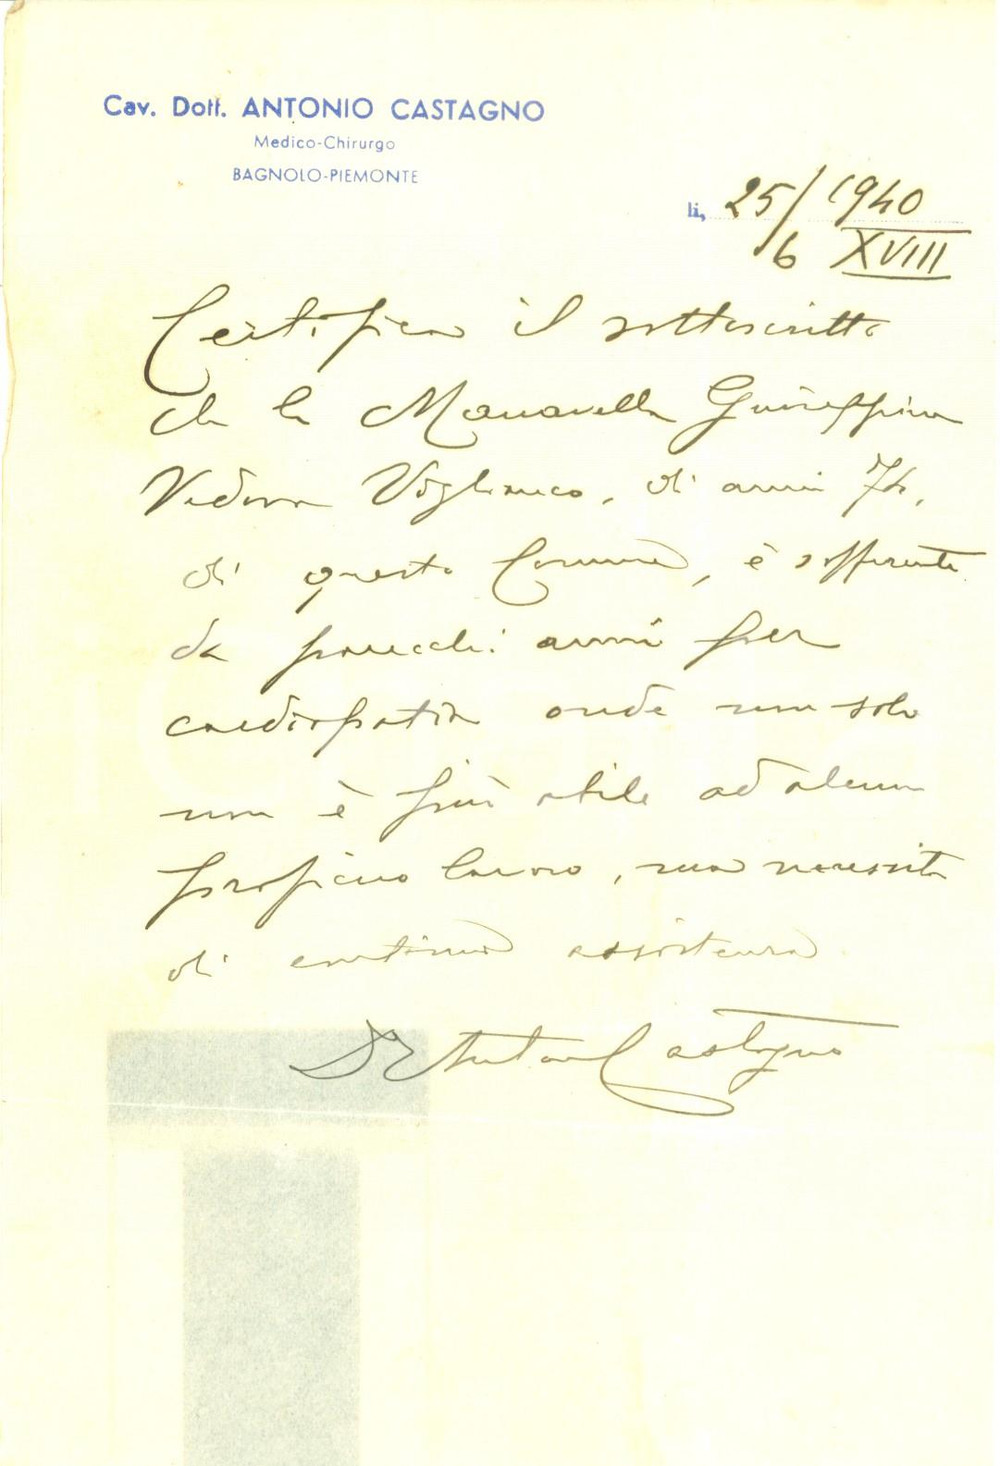 Cav. Dott. ANTONIO CASTAGNO
Medico-Chirurgo
BAGNOLO-PIEMONTE
li, 25/6 1940
XVIII
Certifica il sottoscritto
che la Manavella Giuseppina
Vedova Voglianco, di anni 74,
di questo Comune, è sofferente
da parecchi anni per
cardiopatia onde non solo
non è più abile ad alcun
proficuo lavoro, ma necessita
di continua assistenza
Dr Antonio Castagno